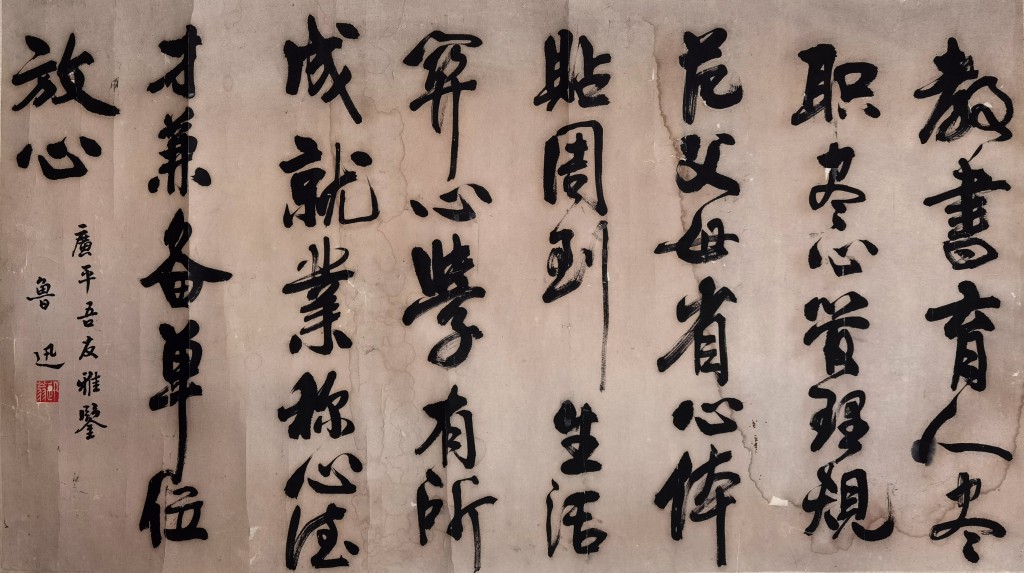 教書育人尽
职尽心管理规
范父母省心体
貼周到生活
心學有所
成就業称心德
才兼备单位
放心
廣平吾友雅鑒
魯迅